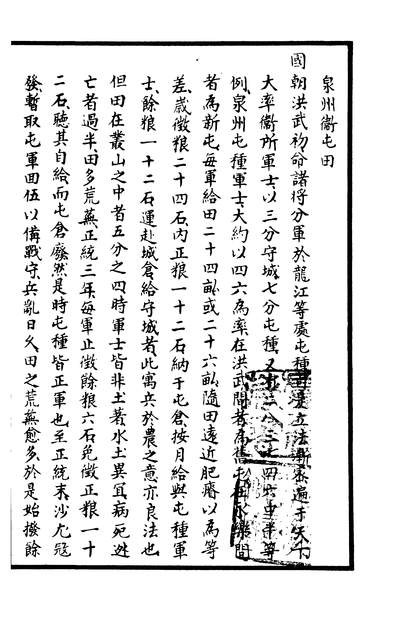 泉州衞屯田
國朝洪武初命諸將分軍於龍江等處屯種由是立法漸密遍于天下
大率衞所軍士以三分守城七分屯種又有二八三七四六中半等
例泉州屯種軍士大約以四六為率在洪武間者為舊屯在永樂間
者為新屯每軍給田二十四畝或二十六畝隨田遠近肥瘠以為等
差歲徵粮二十四石內正粮一十二石納于屯倉按月給與屯種軍
士餘粮一十二石運赴城倉給守城者此寓兵於農之意亦良法也
但田在叢山之中者五分之四時軍士皆非土著水土異宜病死逃
亡者過半田多荒蕪正統三年每軍止徵餘粮六石免徵正粮一十
二石聽其自給而屯倉廢然是時屯種皆正軍也至正統末沙尤冦
發暫取屯軍囬伍以備戰守兵亂日久田之荒蕪愈多於是始撥餘